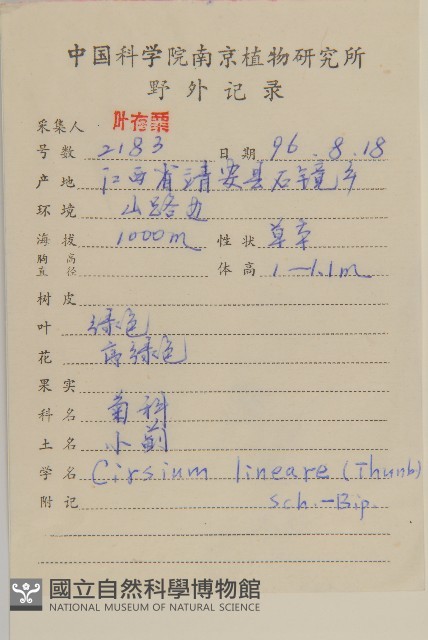 中国科学院南京植物研究所
野外记录
采集人 叶存粟
号数 2183 日期 96.8.18
产地 江西省靖安县石镜乡
环境 山路边
海拔 1000m 性状 草本
胸高直径 体高 1—1.1m
树皮
叶 绿色
花 绿色
果实
科名 菊科
土名 小蓟
学名 Cirsium lineare (Thunb)
附记 Sch.-Bip.
國立自然科學博物館
NATIONAL MUSEUM OF NATURAL SCIENCE